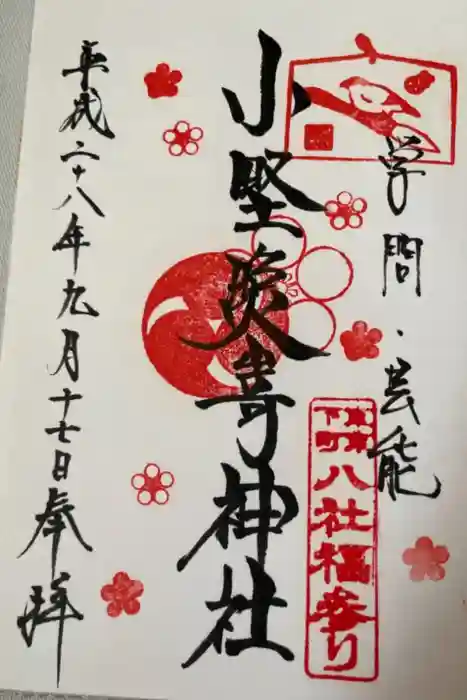 学問・芸能
八社福参り
小野照嵜神社
平成二十八年九月十七日奉拝